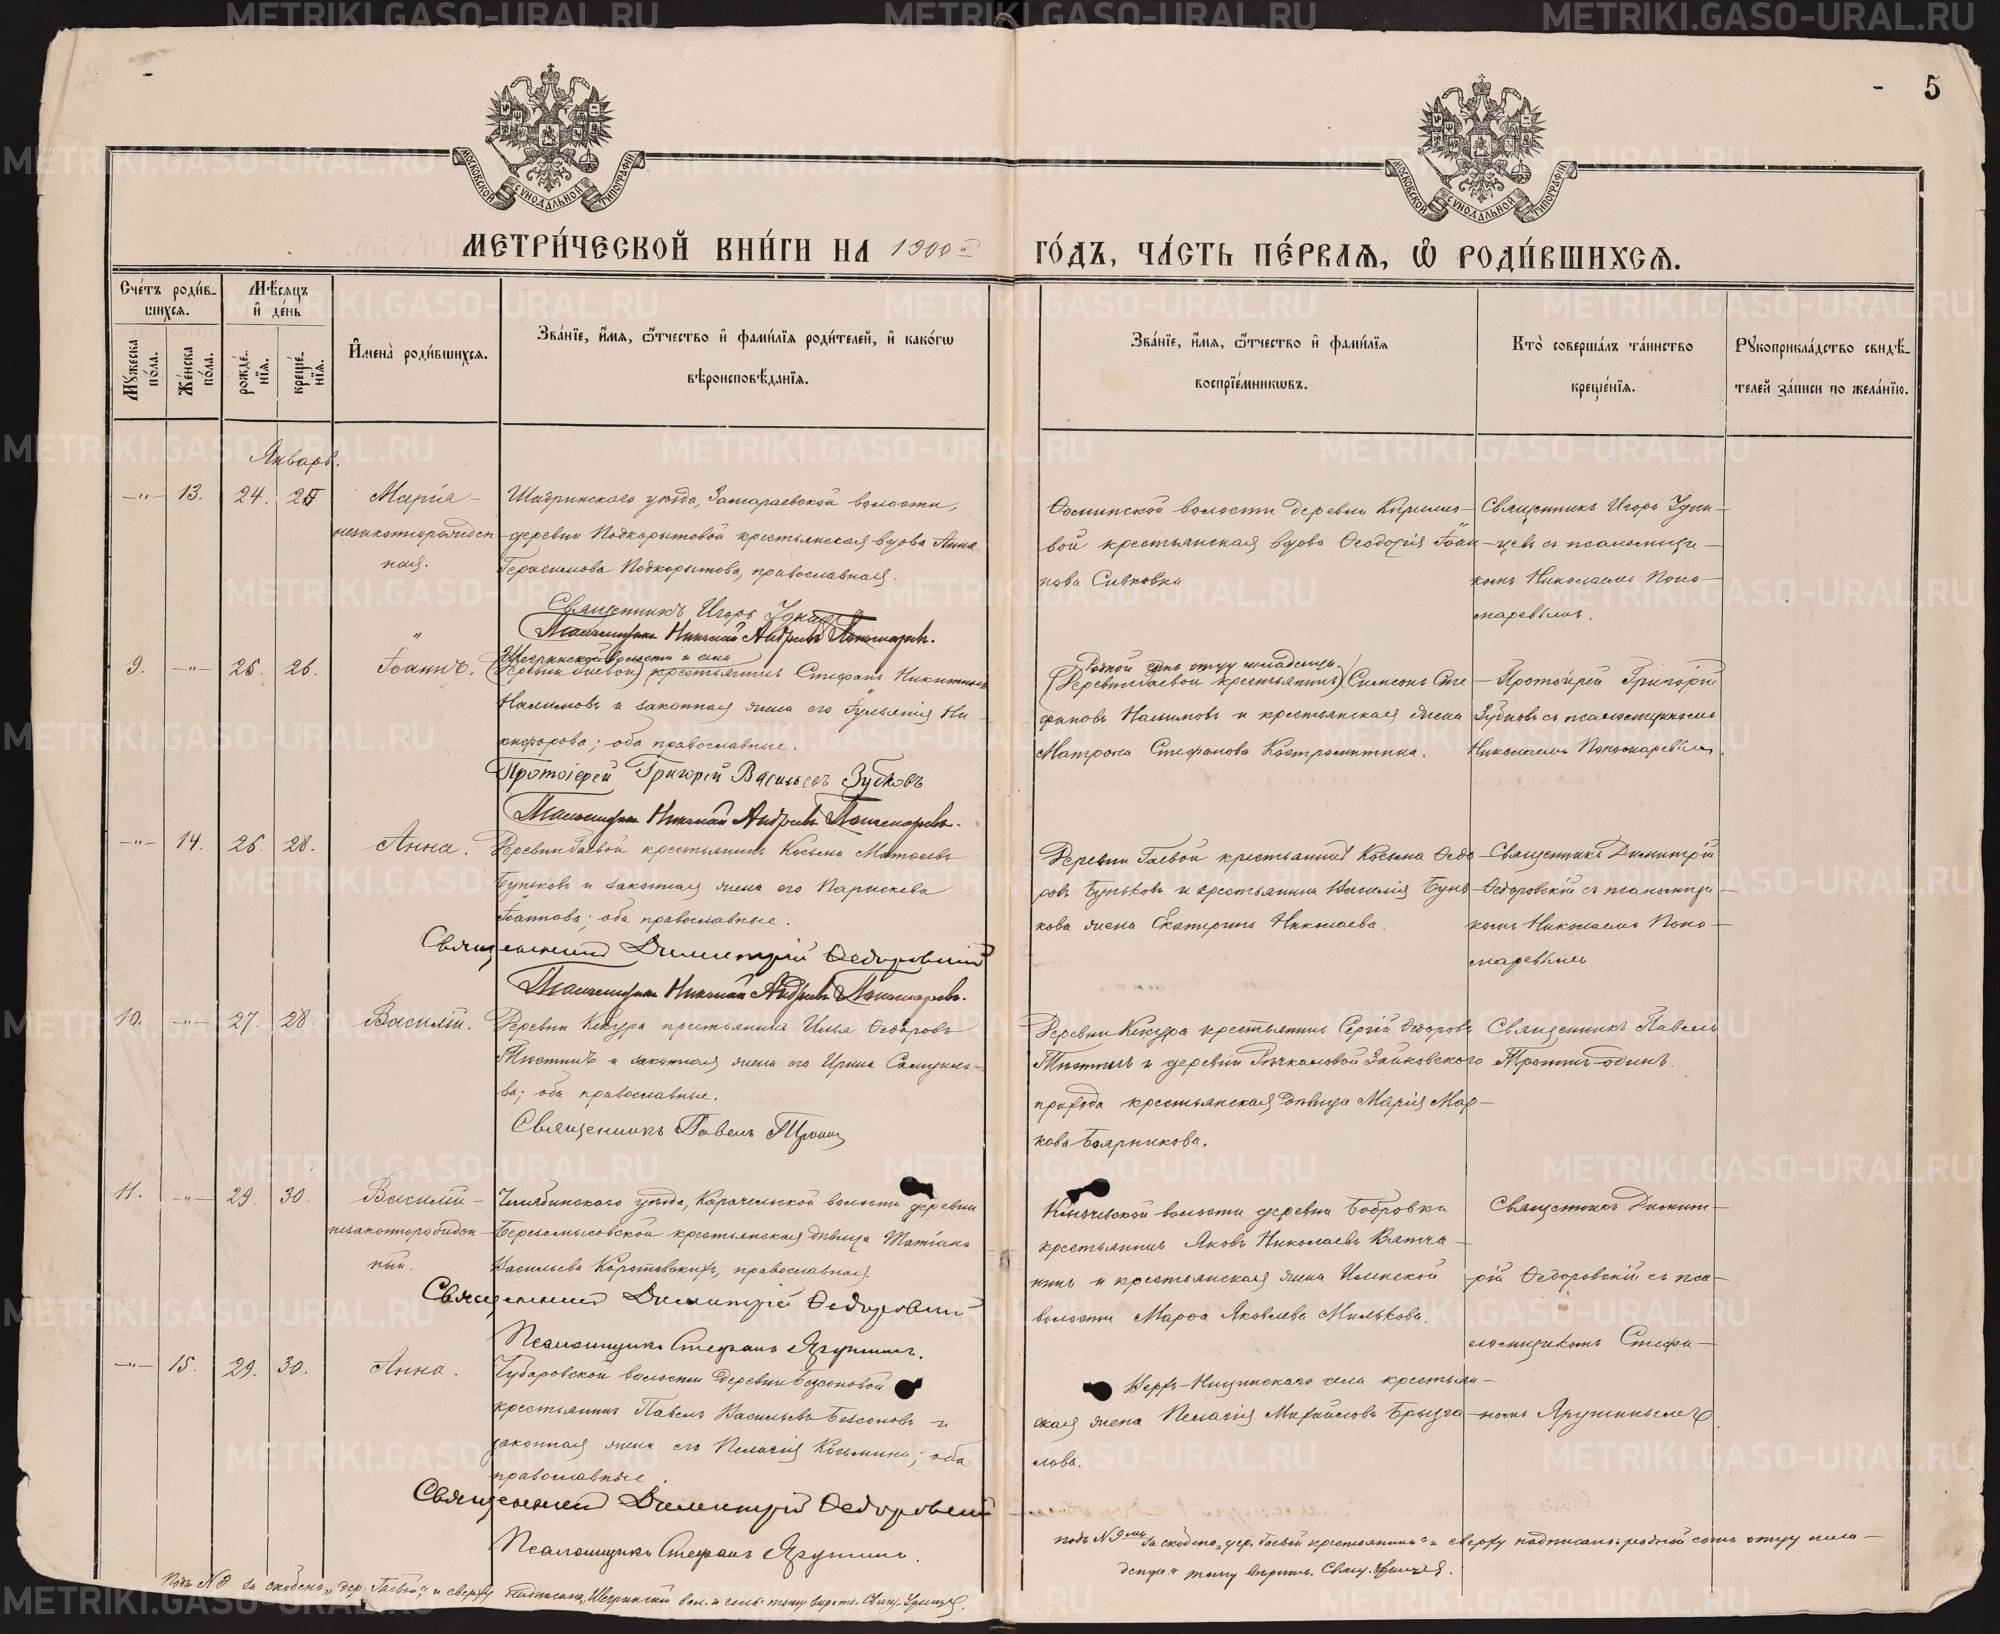 5
МОСКОВСКОЙ СѴНОДАЛЬНОЙ ТИПОГРАФІИ
МОСКОВСКОЙ СѴНОДАЛЬНОЙ ТИПОГРАФІИ
МЕТРИ́ЧЕСКОЙ КНИ́ГИ НА 1900й ГО́ДЪ, ЧА́СТЬ ПЕ́РВАѦ, Ѡ҆ РОДИ́ВШИХСѦ.
Сче́тъ роди́в-
шихсѧ.
Мꙋ́жеска по́ла.
Же́нска по́ла.
Мѣ́сѧцъ
и҆ де́нь
рожде́-
нїѧ.
креще́-
нїѧ.
И҆мена̀ роди́вшихсѧ.
Зва́нїе, и҆́мѧ, ѻ҆́тчество и҆ фами́лїѧ роди́телей, и҆ како́гѡ
вѣроисповѣ́данїѧ.
Зва́нїе, и҆́мѧ, ѻ҆́тчество и҆ фами́лїѧ
воспрїе́мникѡвъ.
Кто̀ соверша́лъ та́инство
креще́нїѧ.
Рꙋкоприкла́дство свидѣ́-
телей за́писи по жела́нїю.
Январь.
—"— 13. 24. 25 Марія —
незаконнорожден-
ная.
Шадринскаго уѣзда, Замараевской волости,
деревни Подкорытовой крестьянская вдова Анна
Герасимова Подкорытова, православная.
Священникъ Игорь
Псаломщикъ Николай Андреевъ Пономаревъ.
волости деревни Кирилло-
вой крестьянская вдова Ѳеодосія Іоан-
нова Сивкова
Священникъ Игорь
съ псаломщи-
комъ Николаемъ Поно-
маревымъ.
9. —"— 25. 26. Іоаннъ.
Щегринской волости и села
(Деревни Гаевой) крестьянинъ Стефанъ Никитинъ
Налимовъ и законная жена его Іульянія Ни-
кифорова; оба православные.
Протоіерей Григорій Васильевъ Зубковъ
Псаломщикъ Николай Андреевъ Пономаревъ.
Родной сынъ отцу младенца
(Деревни Гаевой крестьянинъ) Симеонъ Сте-
фановъ Налимовъ и крестьянская жена
Матрона Стефанова Костромитина.
Протоіерей Григорій
Зубковъ съ псаломщикомъ
Николаемъ Пономаревымъ
—"— 14. 26. 28. Анна.
Деревни Гаевой крестьянинъ Косьма Матѳеевъ
Буньковъ и законная жена его Параскева
Іоаннова; оба православные.
Священникъ Димитрій Ѳедоровскій
Псаломщикъ Николай Андреевъ Пономаревъ.
Деревни Гаевой крестьянинъ Косьма Ѳедо-
ровъ Буньковъ и крестьянина Василія Бунь-
кова жена Екатерина Николаева.
Священникъ Димитрій
Ѳедоровскій съ псаломщи-
комъ Николаемъ Поно-
маревымъ
10. —"— 27. 28. Василій.
Деревни Кекура крестьянинъ Илья Ѳедоровъ
и законная жена его Ирина Самуило-
ва; оба православные.
Священникъ Павелъ
Деревни Кекура крестьянинъ Сергій Ѳедоровъ
и деревни Рычкаловой Зайковскаго
прихода крестьянская дѣвица Марія Мар-
кова Боярникова.
Священникъ Павелъ
одинъ.
11. —"— 29. 30. Василій —
незаконнорожден-
ный.
Челябинскаго уѣзда, Карачельской волости деревни
крестьянская дѣвица Татіана
Васильева Коротовскихъ, православная.
Священникъ Димитрій Ѳедоровскій
Псаломщикъ Стефанъ Ярушинъ.
волости деревни Бобровки
крестьянинъ Яковъ Николаевъ Вятча-
нинъ и крестьянская жена Иленской
волости Марѳа Яковлева Милькова.
Священникъ Димит-
рій Ѳедоровскій съ пса-
ломщикомъ Стефа-
номъ Ярушинымъ
—"— 15. 29. 30. Анна.
Чубаровской волости деревни Безсоновой
крестьянинъ Павелъ Васильевъ Безсоновъ и
законная жена его Пелагія Косьмина; оба
православные
Священникъ Димитрій Ѳедоровскій
Псаломщикъ Стефанъ Ярушинъ.
Верхъ-Ницинскаго села крестьян-
ская жена Пелагія Михайлова Брызга-
лова.
Подъ № 9 за скобено „дер. Гаевой“ и сверху надписано „Щегринской вол. и села“ тому вѣрить. Свящ.
подъ № 9мъ за скобено „дер. Гаевой крестьянинъ“ и сверху надписано: родной сынъ отцу мла-
денца“ тому вѣрить. Свящ.
METRIKI.GASO-URAL.RU